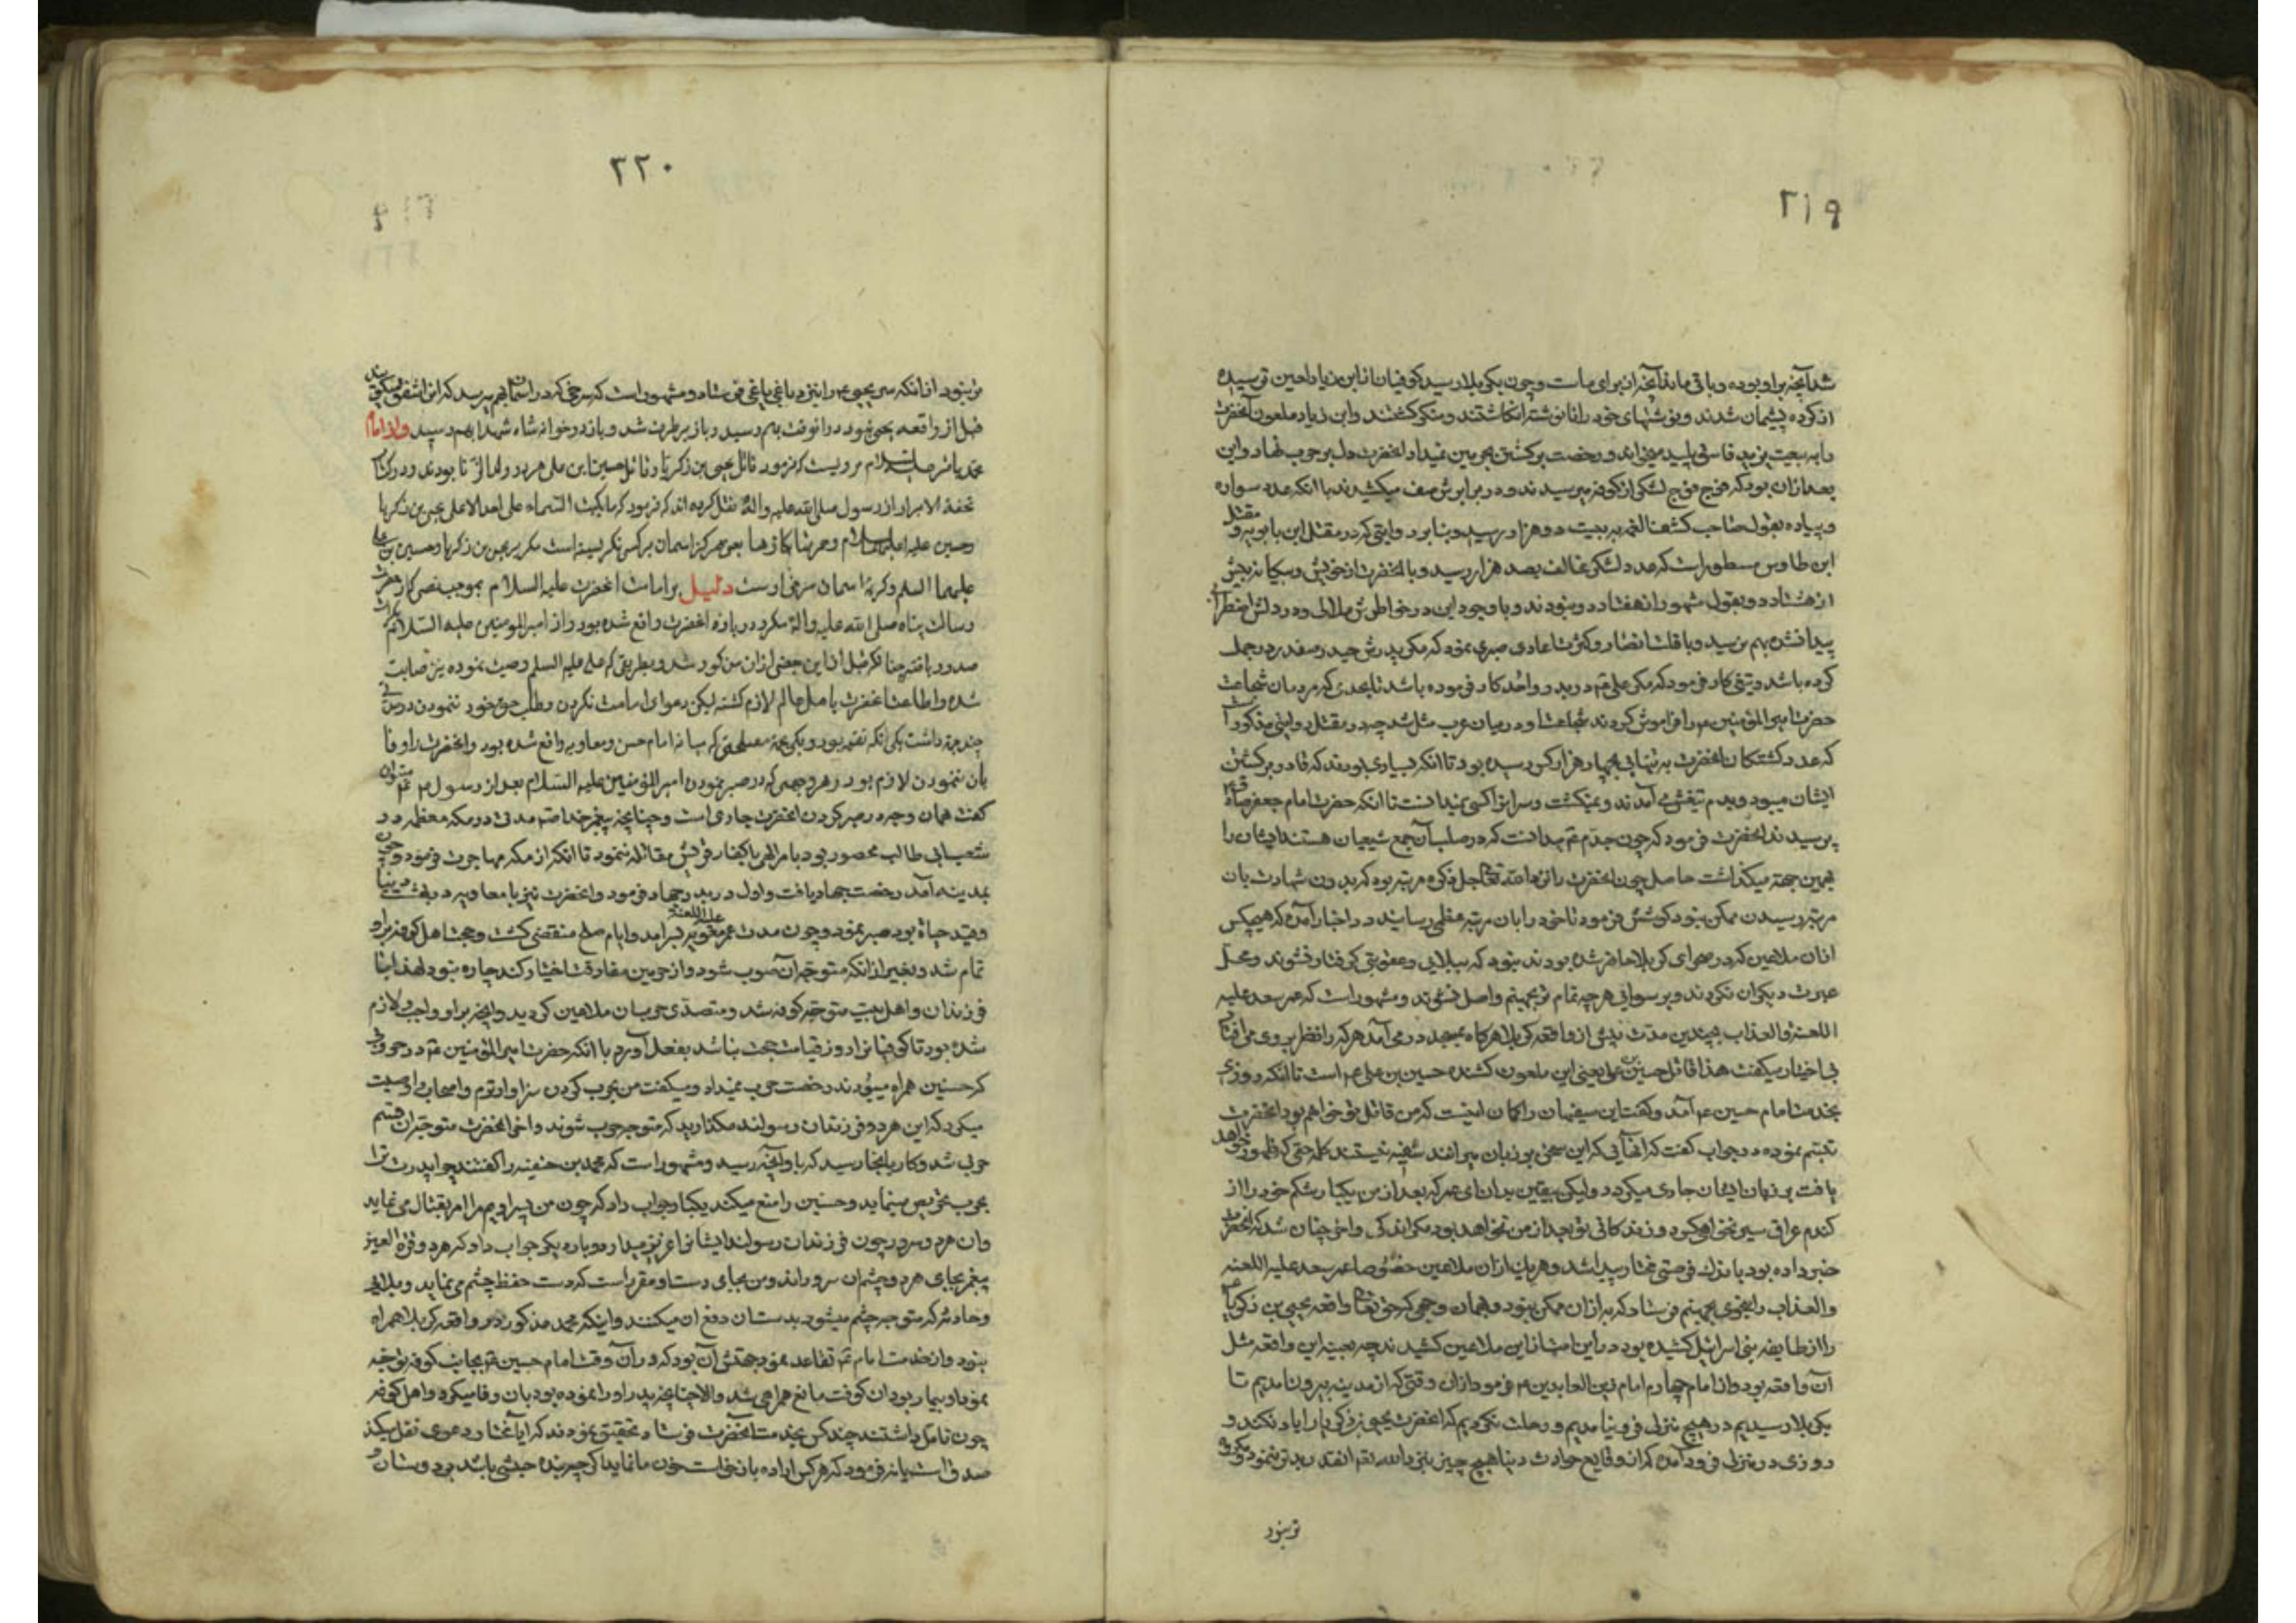 ۲۱۹
شد آنچه بر او بوده و باقی مانده آنچه از برای ماست و چون بکربلا رسید کوفیان از ابن زیاد لعین ترسیده
از کرده پشیمان شدند و نوشتهای خود را نانوشته انکاشتند و منکر کشتند و ابن زیاد ملعون آنحضرت
را به بیعت یزید پلید میخواند و رخصت برکشتن بحرمین نمیداد آنحضرت دل بر حرب نهاد و این
بعد از آن بود که فوج فوج لشکر از کوفه میرسیدند و در برابرش صف میکشیدند با آنکه عدد سواره
و پیاده بقول صاحب کشف الغمه به بیست و دو هزار رسیده بود و روایتی که در مقتل ابن بابویه و مقتل
ابن طاوس مسطور است که عدد لشکر مخالف بصد هزار رسید و با آنحضرت از خویش و بیکانه بیش
از هشتاد و دو و بقول مشهور از هفتاد و دو نبودند و با وجود این در خاطرش ملالی و در دلش اضطرابی
پیدا نشده بهم نرسید و با قلت انصار و کثرت اعادی صبری نمود که مکر پدرش حیدر صفدر در جمل
کرده باشد و تیغی کار فرمود که مکر علی در بدر و احد کار فرموده باشد تا بحدی که مردمان شجاعت
حضرت امیر المؤمنین را فراموش کردند شجاعت او در میان عرب مثل شد چه در مقتل روایتی مذکور است
که عدد کشتکان آنحضرت به تنهایی بچهار هزار کس رسیده بود تا آنکه بسیاری بودند که قادر بر کشتن
ایشان میبود و بدم تیغش می آمدند و نمیکشت و سر آنرا کسی نمیدانست تا آنکه حضرت امام جعفر صادق
پرسیدند آنحضرت فرمود که چون جدم میدانست که در صلب آن جمع شیعیان هستند ایشان را
بهمین جهته میکذاشت حاصل چون آنحضرت را نزد الله تعالی مرتبه بود که بدون شهادت بان
مرتبه رسیدن ممکن نبود کوشش فرمود تا خود را بان مرتبه عظمی رسانید و در اخبار آمده که هیچکس
از آن ملاعین که در صحرای کربلا حاضر شده بودند نبود که ببلایی و عقوبتی کرفتار نشوند و محل
عبرت دیکران نکردند و بر سوائی هرچه تمام تر بجهنم واصل نشوند و مشهور است که عمر سعد علیه
اللعنة والعذاب بچندین مدت پیش از واقعه کربلا هرکاه بمسجد در می آمد هر که را نظر بر وی می افتاد
بی اختیار میکفت هذا قاتل حسین بن علی یعنی این ملعون کشنده حسین بن علی است تا آنکه روزی
بخدمت امام حسین آمد و کفت این سفیهان را کمان اینست که من قاتل تو خواهم بود آنحضرت
تبسم نموده در جواب کفت که آنهایی که این سخن بر زبان میرانند سفیه نیستند کلمه حقی که ظهور خواهد
یافت بر زبان ایشان جاری میکردد و لیکن بیقین بدان ای عمر که بعد از من یکبار شکم خود را از
کندم عراق سیر نخواهی کرد و زندکانی تو بعد از من نخواهد بود مکر اندکی و آخر چنان شد که آنحضرت
خبر داده بود باندک فرصتی مختار پیدا شد و هر یک از آن ملاعین خصوصا عمر سعد علیه اللعنة
والعذاب را بنحوی بجهنم فرستاد که بدتر از آن ممکن نبود و همان وجهی که حق تعالی واقعه یحیی بن زکریا
را از طایفه بنی اسرائیل کشیده بود در این امت از این ملاعین کشیدند چه بعینه این واقعه مثل
آن واقعه بود و از امام چهارم امام زین العابدین فرمود از آن وقتی که از مدینه بیرون آمدیم تا
بکربلا رسیدیم در هیچ منزل فرو نیامدیم و رحلت نکردیم که آنحضرت یحیی بن زکریا را یاد نکند و
روزی در منزل فرود آمده که از وقایع حوادث دنیا هیچ چیز نزد الله
تر نبود
۲۲۰
تر نبود از آنکه سر یحیی را بنزد باغی باغی فرستاد و مشهور است که سرخی که در آسمان بهم میرسد که آنرا شفق میکویند
قبل از واقعه یحیی نبود در آنوقت بهم رسید و باز برطرف شد و باز در خون شاه شهدا بهم رسید و از امام
محمد باقر علیه السلام مرویست که فرمود قاتل یحیی بن زکریا و قاتل حسین ابن علی هر دو ولد الزنا بودند و در کتاب
تحفة الابرار از رسول صلی الله علیه وآله نقل کرده اند که فرمود که ما بکت السماء علی احد الا علی یحیی بن زکریا
وحسین علیهما السلام و حمرتها بکاؤها یعنی هرکز آسمان بر کس نکریسته است مکر بر یحیی بن زکریا و حسین بن علی
علیهما السلم و کریه آسمان سرخی اوست دلیل بر امامت آنحضرت علیه السلام بموجب نصی که از حضرت
رسالت پناه صلی الله علیه وآله مکرر در باره آنحضرت واقع شده بود و از امیر المؤمنین علیه السلام
صدور یافته چنانکه قبل از این بعضی از آن مذکور شد و بطریقی که علی علیه السلم وصیت نموده نیز صایت
شده و اطاعت آنحضرت باهل عالم لازم کشته لیکن دعوای امامت نکردن و طلب حق خود ننمودن
چند جهته داشت یکی آنکه تقیه بود و یکی بجهة مصلحتی که میانه امام حسن و معاویه واقع شده بود و آنحضرت را وفا
بان ننمودن لازم بود و هر وجهی که در صبر نمودن امیر المؤمنین علیه السلام بعد از رسول
کفت همان وجه در صبر کردن آنحضرت جاری است و چنانچه پیغمبر خدا مدتی در مکه معظمه در
شعب ابی طالب محصور بود بامر الهی با کفار قریش مقاتله ننمود تا آنکه از مکه مهاجرت فرمود و چون
بمدینه آمد رخصت جهاد یافت و اول در بدر جهاد فرمود و آنحضرت نیز با معاویه
و قید حیات بود صبر نمود و چون مدت عمر معویه علیه اللعنة بسر آمد و ایام صلح منقضی کشت و حجت اهل کوفه بر او
تمام شد و بغیر از آنکه متوجه آن صوب شود و از حرمین مفارقت اختیار کند چاره نبود لهذا با
فرزندان و اهل بیت متوجه کوفه شد و متصدی حرب آن ملاعین کردید و آنچه بر او واجب و لازم
شده بود تا کوفیانرا روز قیامت حجت نباشد بفعل آورد با آنکه حضرت امیر المؤمنین در حروبی
که حسنین همراه میبودند رخصت حرب نمیداد و میکفت من بحرب کردن سزاوارترم و اصحاب را وصیت
میکرد که این هر دو فرزندان رسولند مکذارید که متوجه حرب شوند و آخر آنحضرت متوجه آن قسم
حربی شد و کار بانجا رسید که باو آنچه رسید و مشهور است که محمد بن حنفیه را کفتند چرا پدرت ترا
بحرب تحریص مینماید و حسنین را منع میکند یکبار جواب داد که چون من پسر اویم مرا امر بقتال می نماید
و آن هر دو سرور چون فرزندان رسولند ایشانرا عزیز میدارد و باره دیکر جواب داد که هر دو قرة العین
پیغمبر بجای هر دو چشمان سرورند و من بجای دست و مقرر است که دست حفظ چشم می نماید و بلایی
و حادثه که متوجه چشم میشود بدستان دفع آن میکنند و اینکه محمد مذکور در واقعه کربلا همراه
نبود و از خدمت امام تقاعد نمود جهتش آن بود که در آن وقت امام حسین بجانب کوفه توجه
نمود او بیمار بود آن کوفت مانع همراهی شد والا چنانچه پدر او را نموده بود بان وفا میکرد و اهل کوفه
چون تأمل داشتند چند کس بخدمت آنحضرت فرستاده تحقیق نمودند که آیا مختار در دعوی نقل میکند
صدق است یا نه فرمود که هر کس اراده باز خواست خون ما نماید اگرچه بنده حبشی باشد